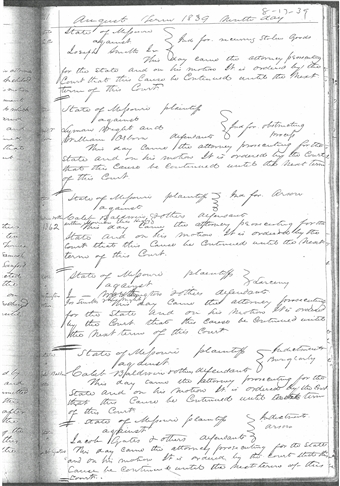 8-17-39
August Term 1839 Ninth day
State of Missouri
against
Joseph Smith Jr
Ind for receiving Stolen Goods
This day came the attorney prosecuting
for the State and on his motion It is ordered by the
Court that this Cause be Continued until the Next
term of this Court
State of Missouri plaintiff
against
Lyman Wight and
defendant
Ind for obstructing
process
This day Came the attorney prosecuting for the
State and on his motion It is ordered by the Court
that this Cause be Continued until the Next term
of this Court
State of Missouri plaintiff
against
Ind for Arson
Caleb Baldwin & others defendant
This day came the attorney prosecuting for the
State and on his motion It is ordered by the
Court that this Cause be Continued until the Next
term of this Court.
State of Missouri plaintiff
against
Larceny
& others defendant
This day came the attorney prosecuting
for the State and on his motion It is ordered
by the Court that this Cause be Continued until
the Next term of this Court
State of Missouri plaintiff
against
Indictment
Burglary
Caleb Baldwin & others defendant
This day came the attorney prosecuting for the
State and on his motion It is ordered by the Court
that this Cause be Continued until term
of this Court.
State of Missouri plaintiff
against
Indictment
arson
Jacob Gates & others defendant
This day came the attorney prosecuting for the State
and on his motion It is ordered by the court that this
Cause be Continued until the Next term of this
Court.